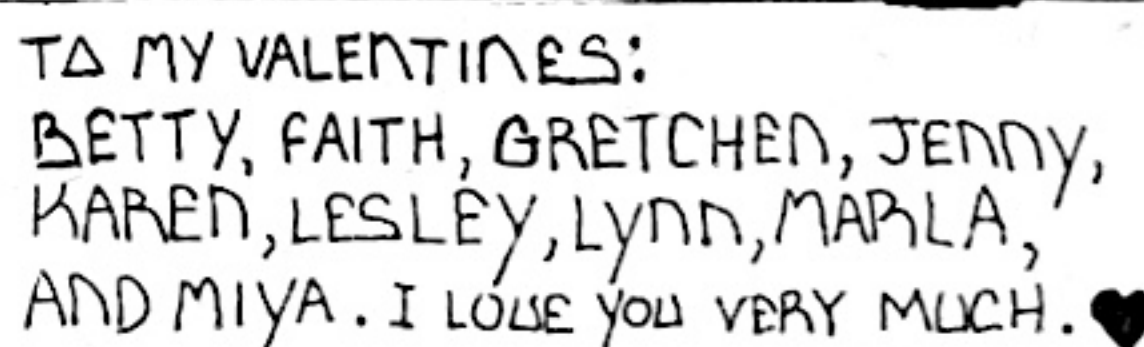 TO MY VALENTINES:
BETTY, FAITH, GRETCHEN, JENNY,
KAREN, LESLEY, LYNN, MARLA,
AND MIYA. I LOVE YOU VERY MUCH. ♥